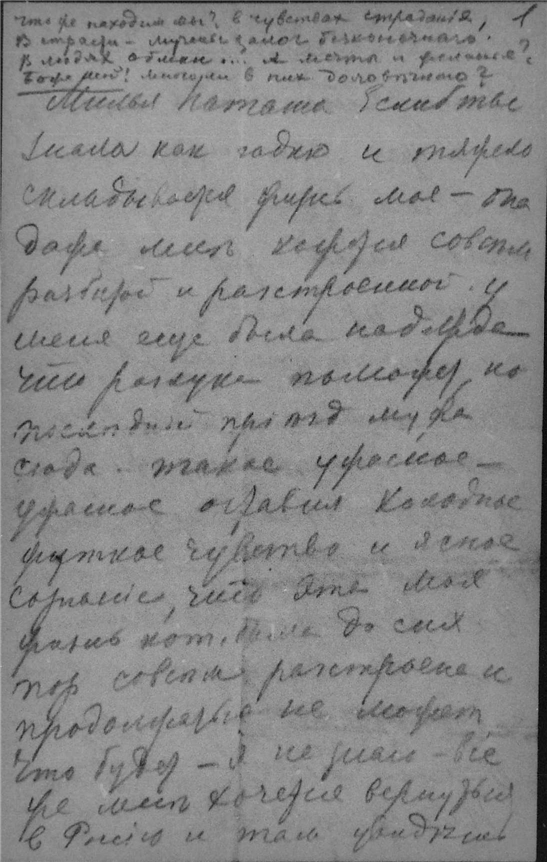 что же находим мы? в чувствах страданія, 1
В страсти – мученье залог безконечнаго.
В людях обман... А мечты и желанья?
Боже мой! много ли в них долговѣчнаго?
Милая Наташа Если б ты
знала как гадко и тяжело
складывается жизнь моя – она
даже мнѣ кажется совсѣм
разбитой и разстроенной. У
меня еще была надежда
что разлука поможет, но
послѣдній пріѣзд мужа
сюда такое ужасное –
ужасное оставил холодное
жуткое чувство и ясное
сознаніе, что эта моя
жизнь кот. была до сих
пор совсѣм разстроена и
продолжаться не может
Что будет – я не знаю – все
же мнѣ хочется вернуться
в Россію и там увидѣть